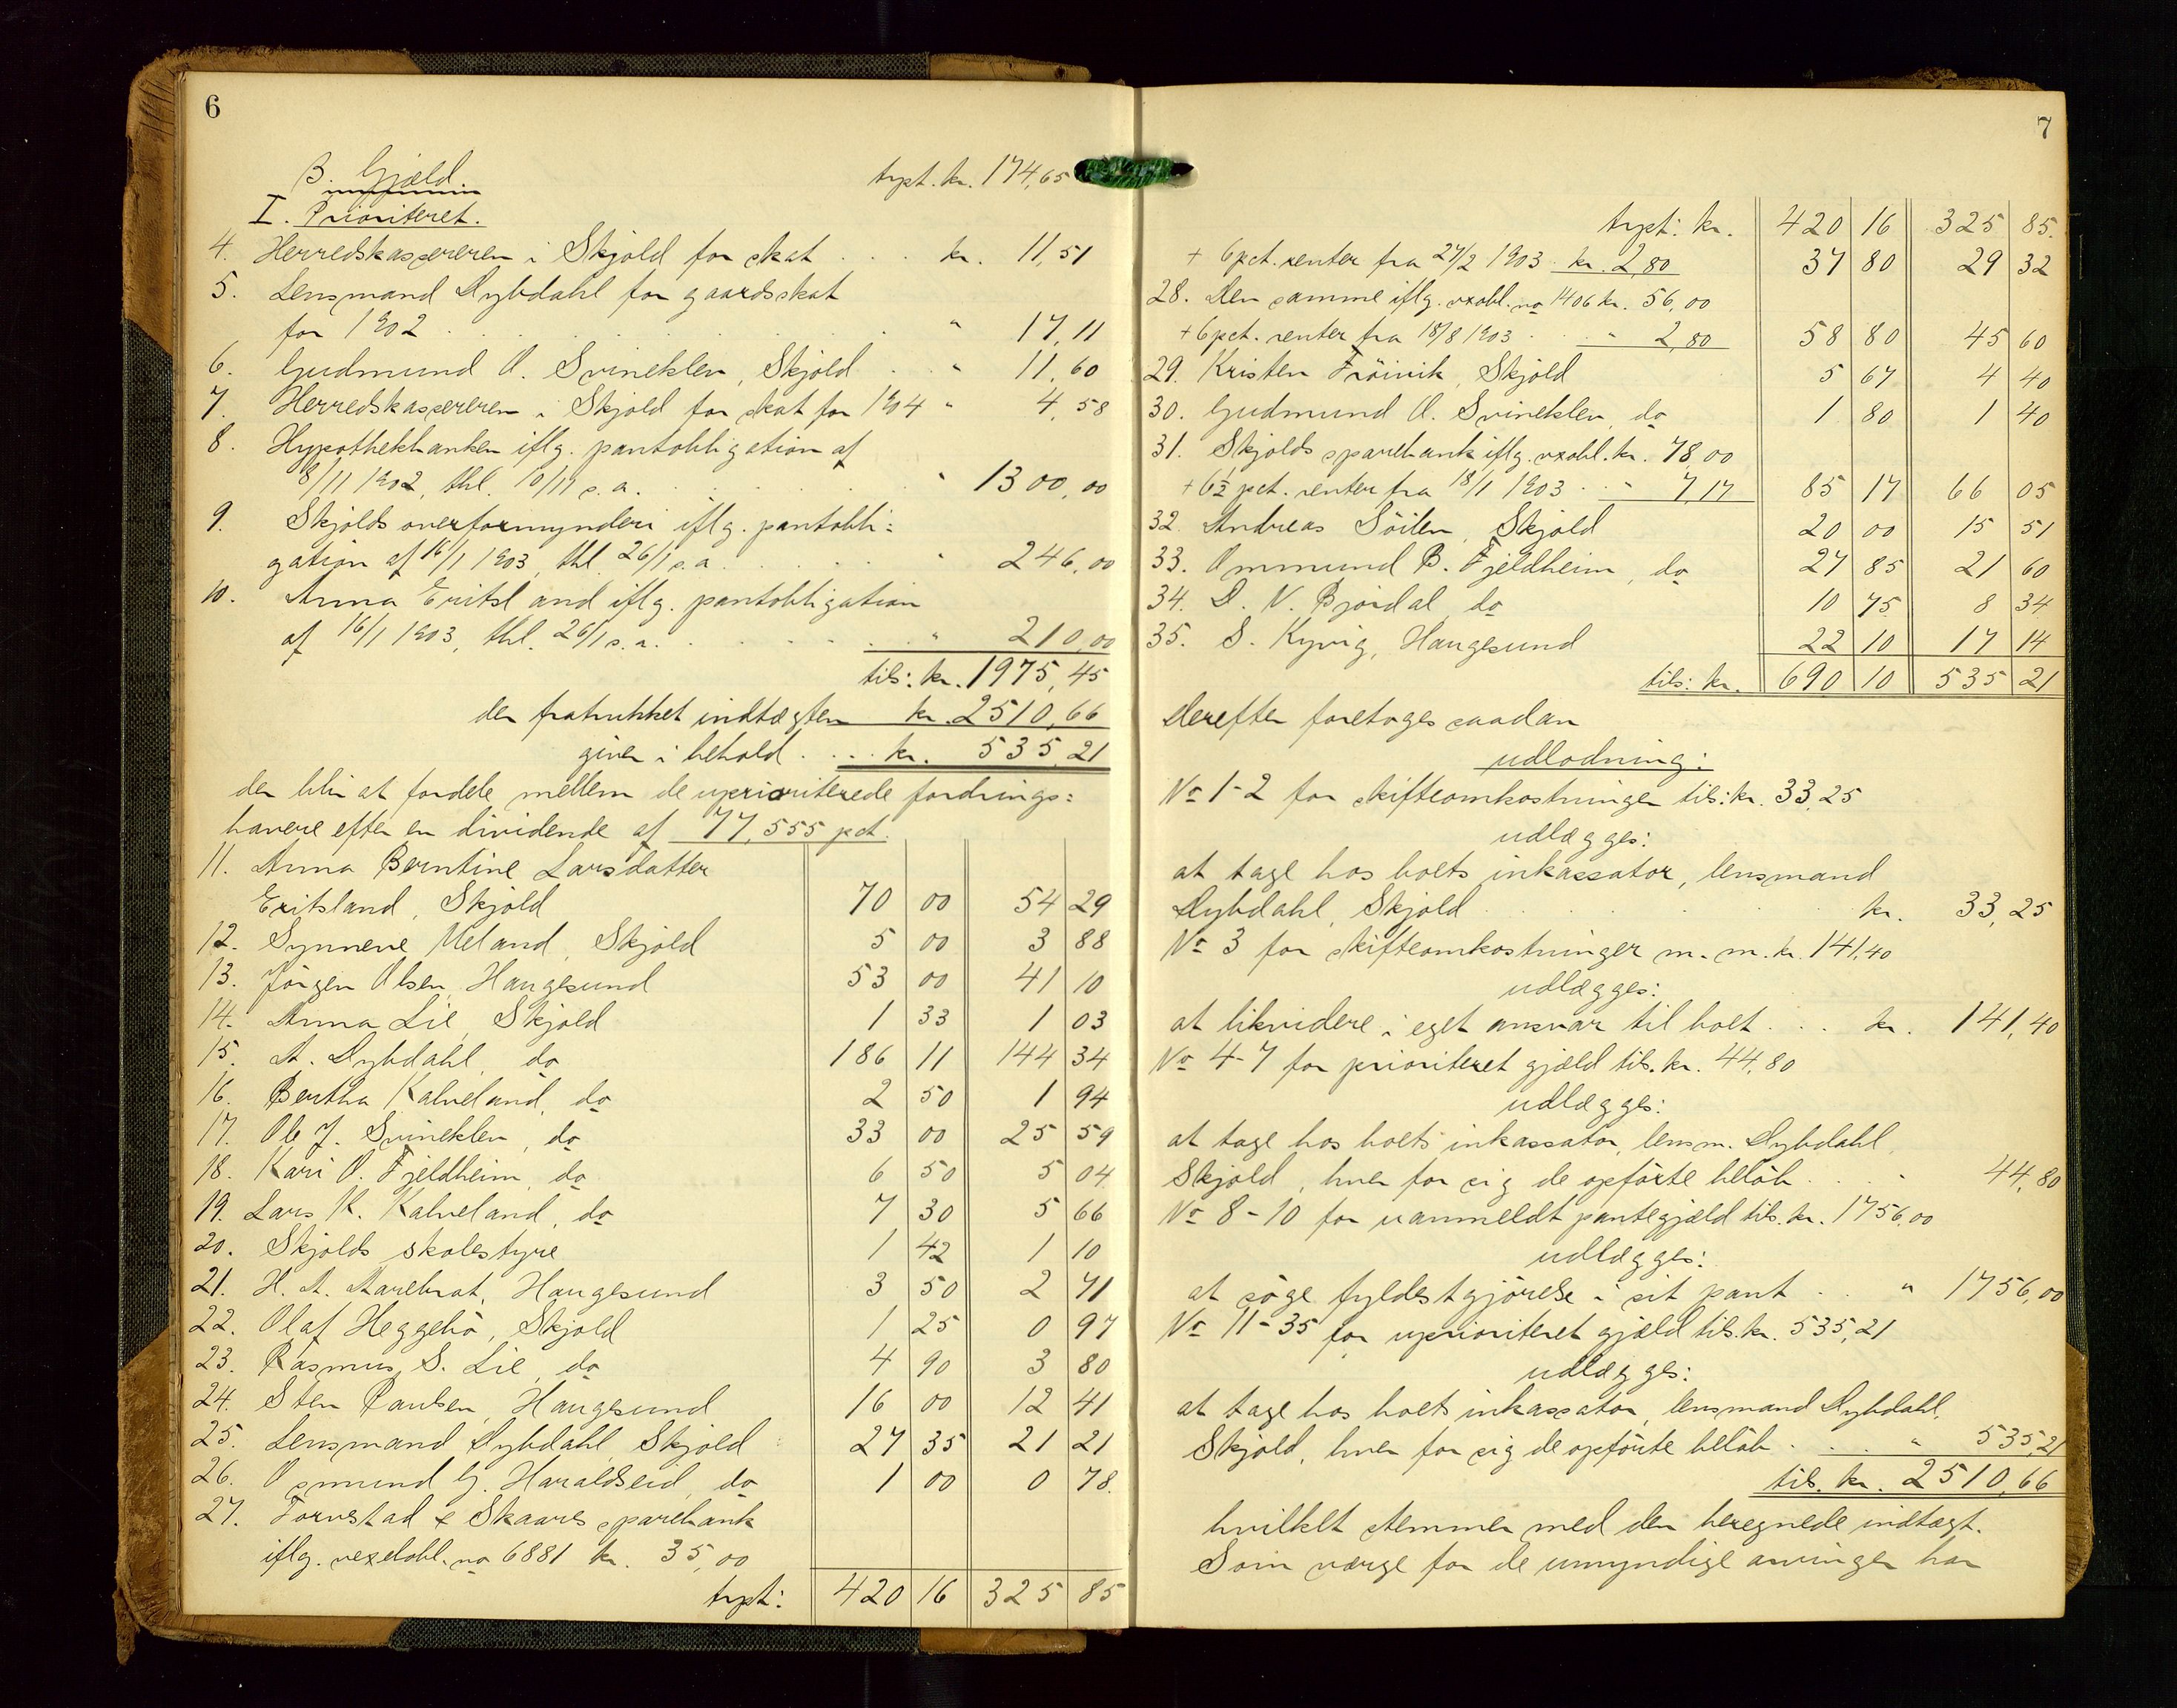 6
B. Gjæld. trpt. kr. 174,65
I. Prioriteret.
4. Herredskassereren i Skjold for skat . . . kr. 11,51
5. Lensmand Dybdahl for gaardsskat
for 1902 . . . . . . . " 17,11
6. Gudmund O. Svineklev, Skjold . . " 11,60
7. Herredskassereren i Skjold for skat for 1904 " 4,58
8. Hypothekbanken iflg. pantobligation af
8/11 1902, thl. 10/11 s. a. . . . . " 1300,00
9. Skjolds overformynderi iflg. pantobli=
gation af 16/1 1903, thl. 26/1 s. a. . . . . " 246,00
10. Anna Eritsland iflg. pantobligation
af 16/1 1903, thl. 26/1 s. a. . . . . . " 210,00
tils: kr. 1975,45
der fratrukket indtægten kr. 2510,66
giver i behold . . . kr. 535,21
der blir at fordele mellem de uprioriterede fordrings=
havere efter en dividende af 77,555 pct.
11. Anna Berntine Larsdatter
Eritsland, Skjold 70 00 54 29
12. Synneve Meland, Skjold 5 00 3 88
13. Jörgen Olsen, Haugesund 53 00 41 10
14. Anna Lie, Skjold 1 33 1 03
15. A. Dybdahl, do 186 11 144 34
16. Bertha Kalveland, do 2 50 1 94
17. Ole J. Svineklev, do 33 00 25 59
18. Kari O. Fjeldheim, do 6 50 5 04
19. Lars K. Kalveland, do 7 30 5 66
20. Skjolds skolestyre 1 42 1 10
21. H. A. Aarebrot, Haugesund 3 50 2 71
22. Olaf Heggebö, Skjold 1 25 0 97
23. Rasmus S. Lie, do 4 90 3 80
24. Sten Paulsen, Haugesund 16 00 12 41
25. Lensmand Dybdahl, Skjold 27 35 21 21
26. Osmund G. Haraldseid, do 1 00 0 78
27. Torvestad & Skaares sparebank
iflg. vexelobl. no 6881 kr. 35,00
trpt: 420 16 325 85
7
trpt: kr. 420 16 325 85
+ 6 pct. renter fra 27/2 1903 kr. 2,80 37 80 29 32
28. Den samme iflg. vxobl. no 1406 kr. 56,00
+ 6 pct. renter fra 18/8 1903 . . " 2,80 58 80 45 60
29. Kristen Fröivik, Skjold 5 67 4 40
30. Gudmund O. Svineklev, do 1 80 1 40
31. Skjolds sparebank iflg. vxobl. kr. 78,00
+ 6½ pct. renter fra 18/1 1903 . . " 7,17 85 17 66 05
32. Andreas Söilen, Skjold 20 00 15 51
33. Ommund B. Fjeldheim, do 27 85 21 60
34. D. N. Bjordal, do 10 75 8 34
35. S. Kyvig, Haugesund 22 10 17 14
tils: kr. 690 10 535 21
Derefter foretoges saadan
udlodning:
No 1-2 for skifteomkostninger tils: kr. 33,25
udlægges:
at tage hos boets inkassator, lensmand
Dybdahl, Skjold . . . . . kr. 33,25
No 3 for skifteomkostninger m. m. kr. 141,40
udlægges:
at likvidere i eget ansvar til boet . . . kr. 141,40
No 4-7 for prioriteret gjæld tils. kr. 44,80
udlægges:
at tage hos boets inkassator, lensm. Dybdahl,
Skjold, hver for sig de opförte belöb . . . " 44,80
No 8-10 for uanmeldt pantegjæld tils. kr. 1756,00
udlægges:
at söge fyldestgjörelse i sit pant . . " 1756,00
No 11-35 for uprioriteret gjæld tils. kr. 535,21
udlægges:
at tage hos boets inkassator, lensmand Dybdahl,
Skjold, hver for sig de opförte belöb . . . " 535,21
tils. kr. 2510,66
hvilket stemmer med den beregnede indtægt.
Som værge for de umyndige arvinger har